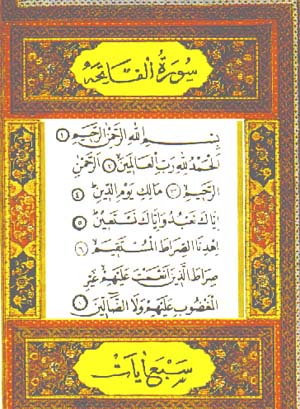 سُورَةُ الْفَاتِحَة
بِسْمِ اللَّهِ الرَّحْمَٰنِ الرَّحِيمِ ١
الْحَمْدُ لِلَّهِ رَبِّ الْعَالَمِينَ ٢ الرَّحْمَٰنِ
الرَّحِيمِ ٣ مَالِكِ يَوْمِ الدِّينِ ٤
إِيَّاكَ نَعْبُدُ وَإِيَّاكَ نَسْتَعِينُ ٥
اهْدِنَا الصِّرَاطَ الْمُسْتَقِيمَ ٦
صِرَاطَ الَّذِينَ أَنْعَمْتَ عَلَيْهِمْ غَيْرِ
الْمَغْضُوبِ عَلَيْهِمْ وَلَا الضَّالِّينَ ٧
سَبْعُ آيَاتٍ